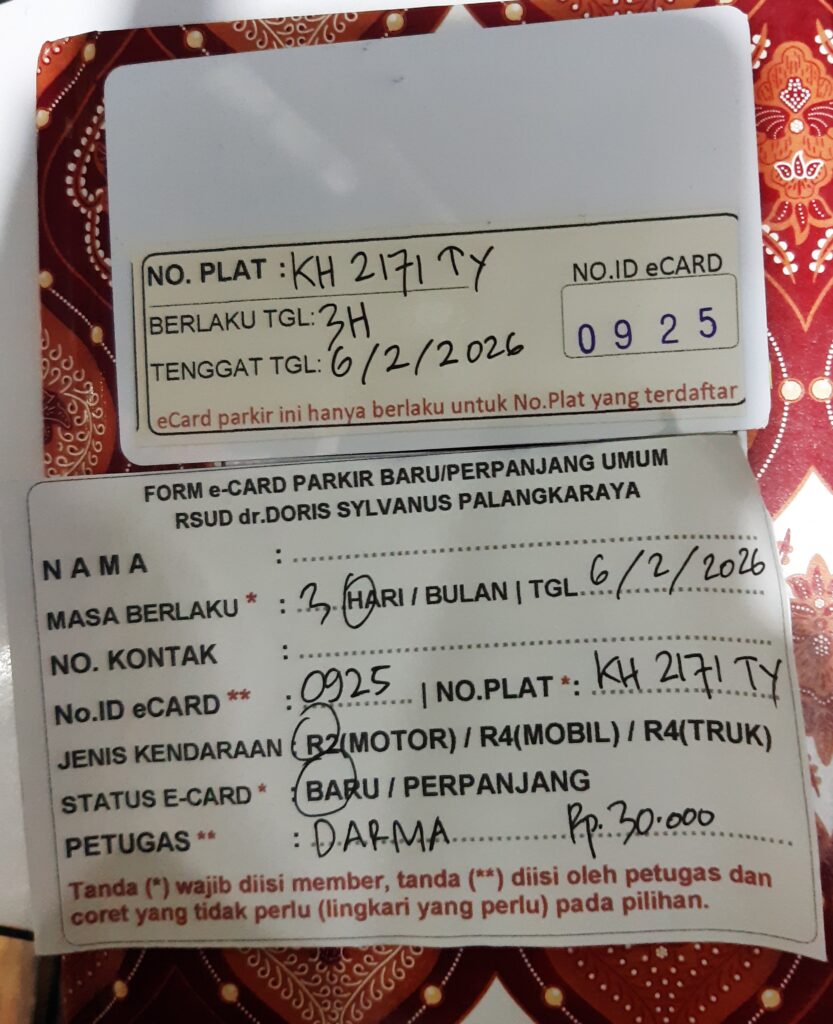 NO. PLAT : KH 2171 TY
NO.ID eCARD
BERLAKU TGL: 3H
0925
TENGGAT TGL: 6/2/2026
eCard parkir ini hanya berlaku untuk No.Plat yang terdaftar
FORM e-CARD PARKIR BARU/PERPANJANG UMUM
RSUD dr.DORIS SYLVANUS PALANGKARAYA
NAMA :
MASA BERLAKU * : 3 HARI / BULAN | TGL 6/2/2026
NO. KONTAK :
No.ID eCARD ** : 0925 | NO.PLAT *: KH 2171 TY
JENIS KENDARAAN : R2(MOTOR) / R4(MOBIL) / R4(TRUK)
STATUS E-CARD * : BARU / PERPANJANG
PETUGAS ** : DARMA Rp. 30.000
Tanda (*) wajib diisi member, tanda (**) diisi oleh petugas dan
coret yang tidak perlu (lingkari yang perlu) pada pilihan.